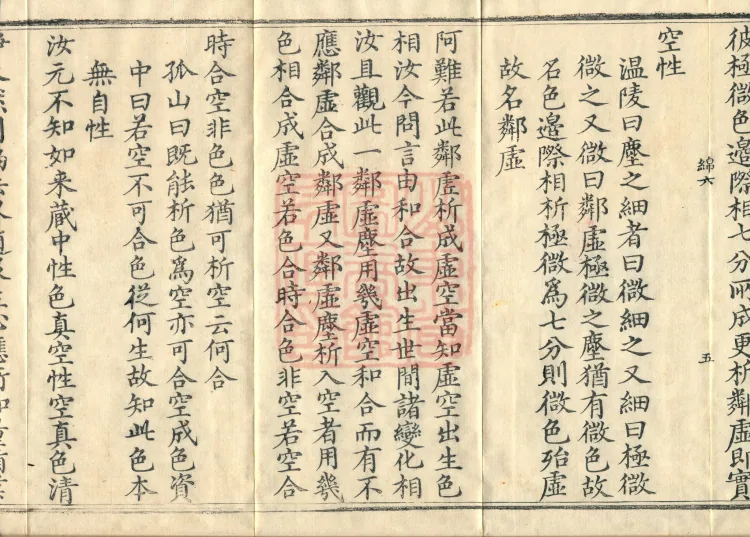 彼極微色邊際相七分所成更析鄰虛即實
空性
綿六
五
温陵曰塵之細者曰微細之又細曰極微
微之又微曰鄰虛極微之塵猶有微色故
名色邊際相析極微爲七分則微色殆虛
故名鄰虛
阿難若此鄰虛析成虛空當知虛空出生色
相汝今問言由和合故出生世間諸變化相
汝且觀此一鄰虛塵用幾虛空和合而有不
應鄰虛合成鄰虛又鄰虛塵析入空者用幾
色相合成虛空若色合時合色非空若空合
時合空非色色猶可析空云何合
孤山曰既能析色爲空亦可合空成色資
中曰若空不可合色從何生故知此色本
無自性
汝元不知如来蔵中性色真空性空真色清